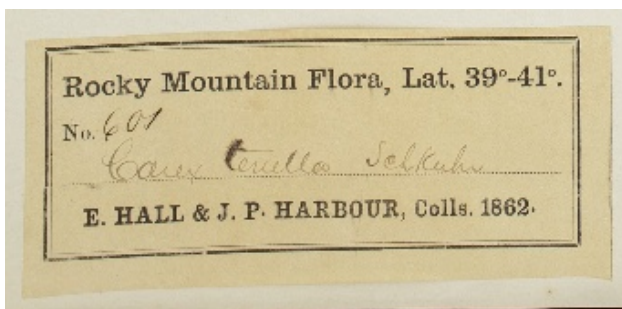 Rocky Mountain Flora, Lat. 39°-41°.
No. 601
Carex tenella Schkuhr
E. HALL & J. P. HARBOUR, Colls. 1862.